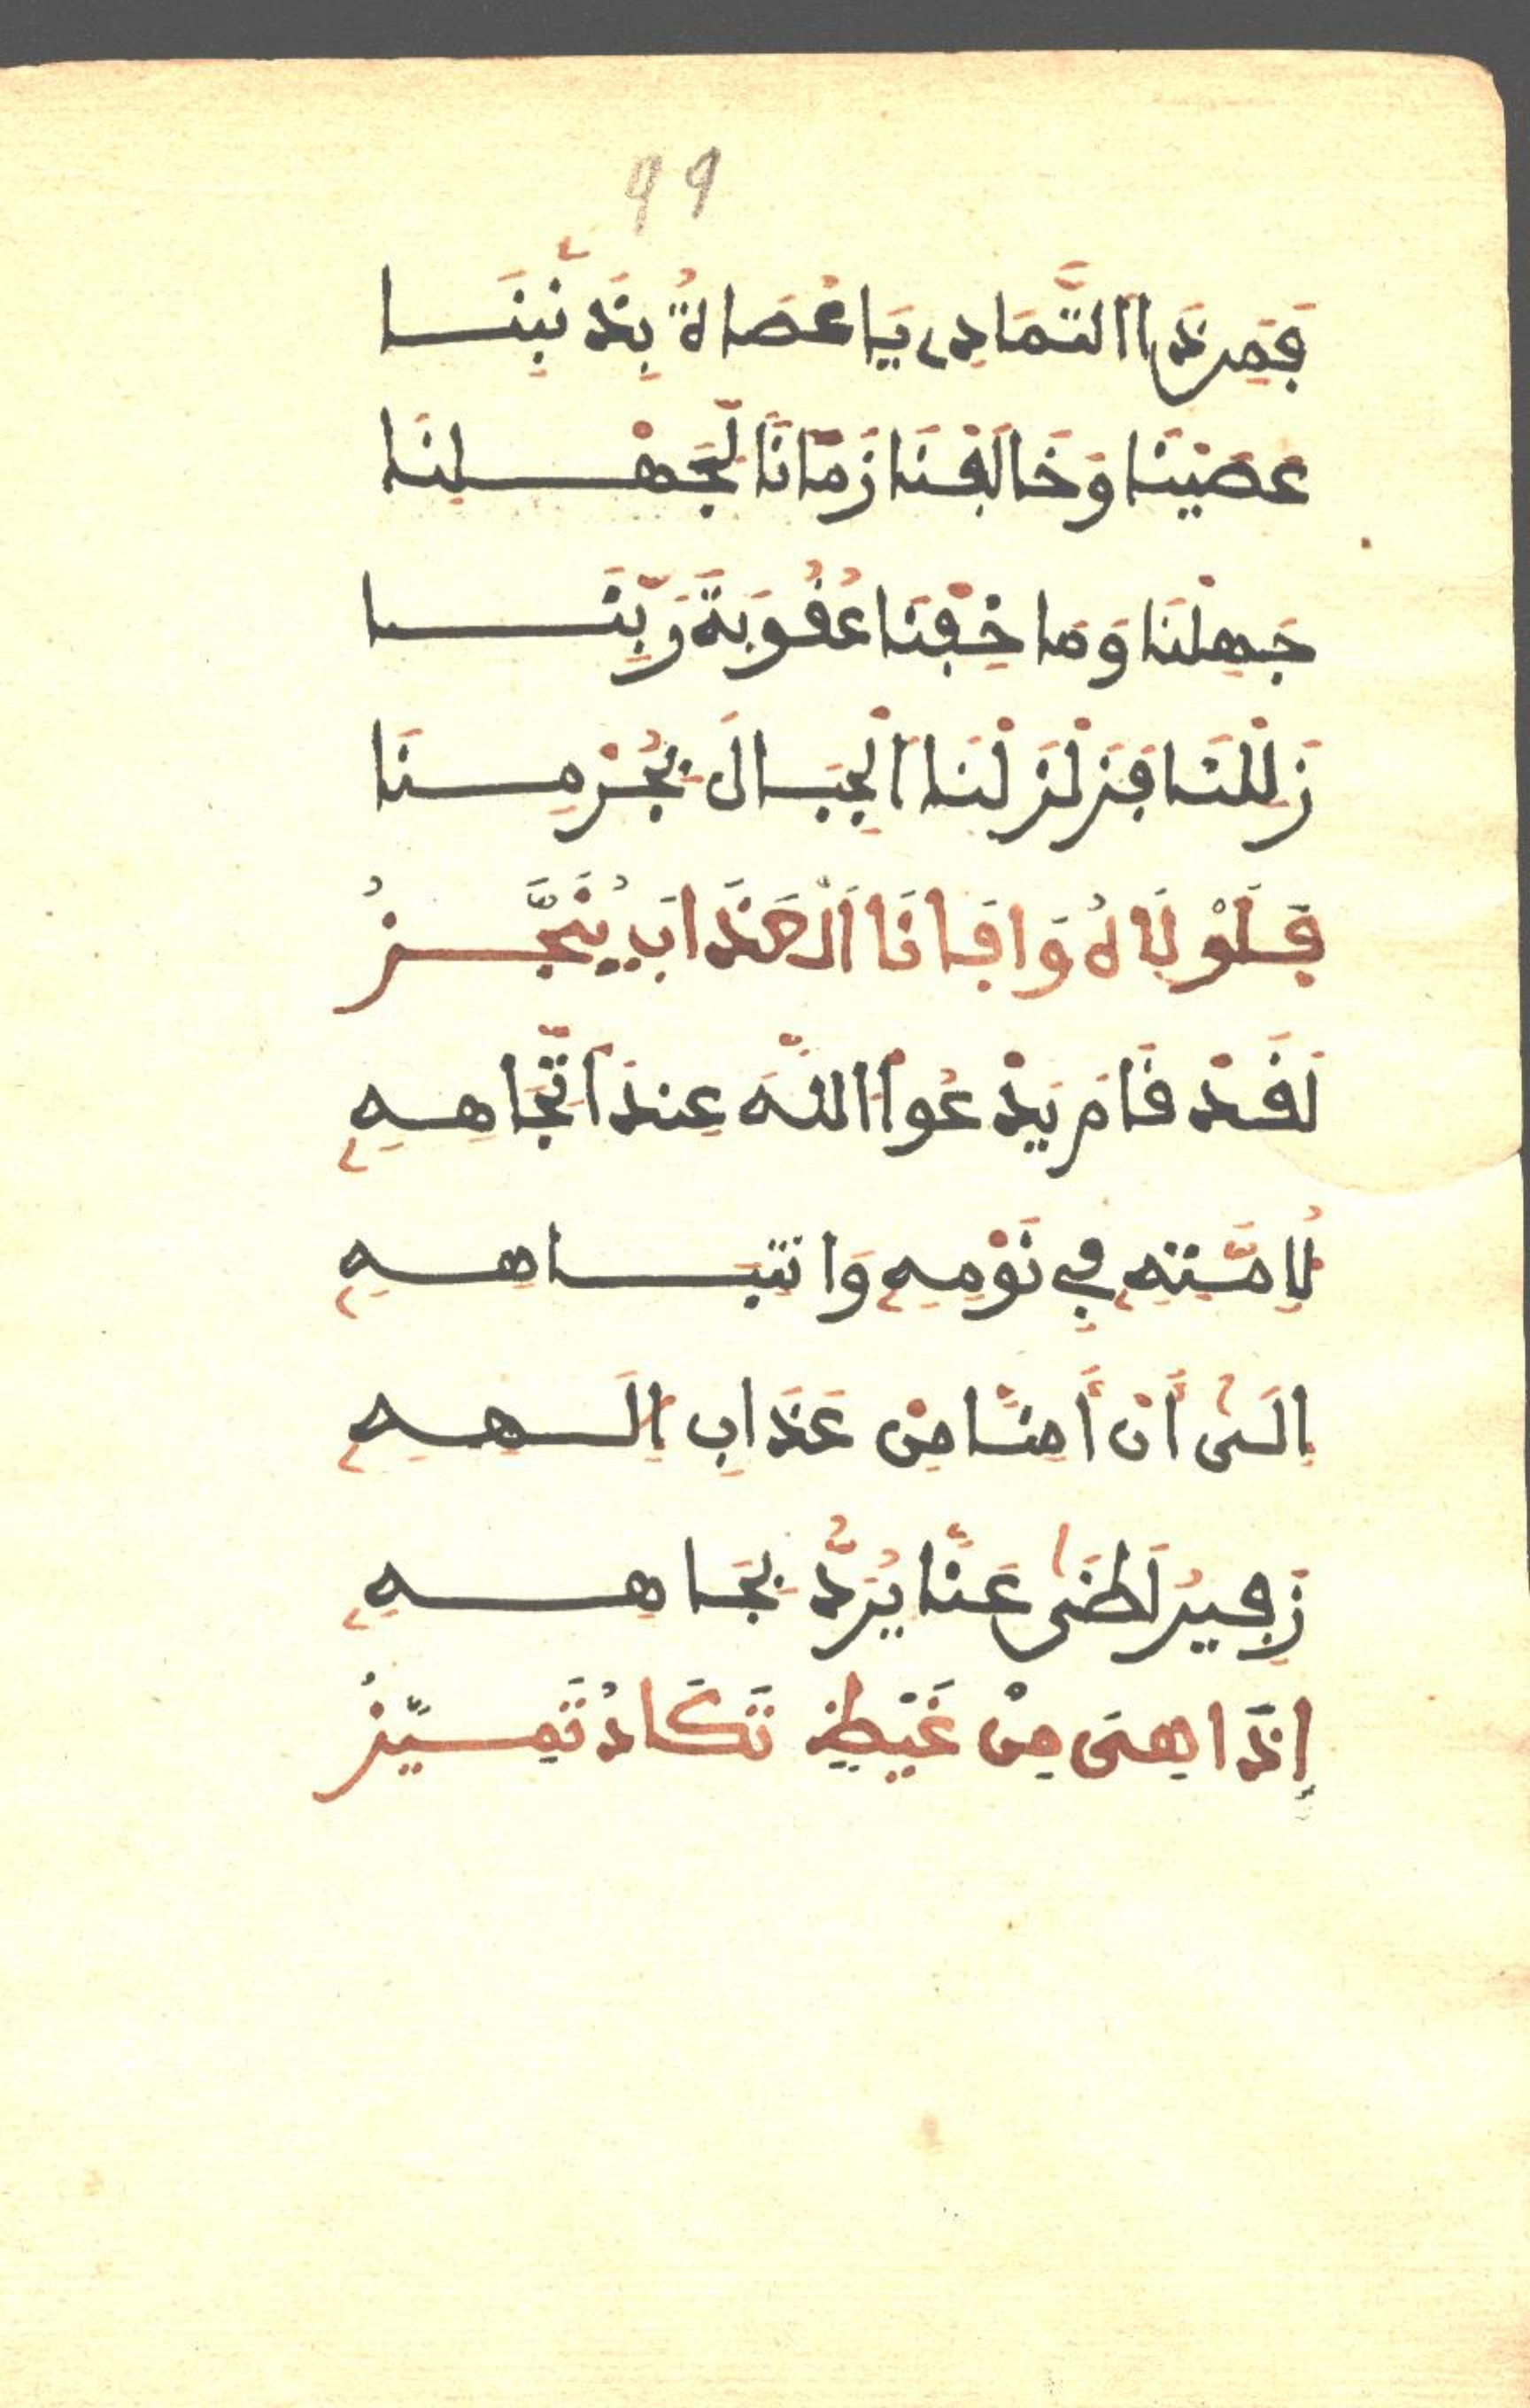 99
فَمِن ذَا التَّمَادِى يَا عُصَاةُ بِذَنْبِنَا
عَصَيْنَا وَخَالَفْنَا زَمَانًا لِجَهْلِنَا
جَهِلْنَا وَمَا خِفْنَا عُقُوبَةَ رَبِّنَا
زَلِلْنَا فَزَلْزَلْنَا الْجِبَالَ بِجُرْمِنَا
فَلَوْلَاهُ وَافَانَا الْعَذَابُ يُنَجَّزُ
لَقَدْ قَامَ يَدْعُوا اللَّهَ عِندَ اتِّجَاهِهِ
لِأُمَّتِهِ فِي نَوْمِهِ وَانتِبَاهِهِ
إِلَى أَنْ أَمِنَّا مِنْ عَذَابِ إِلَهِهِ
زَفِيرُ لَظَى عَنَّا يُرَدُّ بِجَاهِهِ
إِذَا هِىَ مِنْ غَيْظٍ تَكَادُ تَمَيَّزُ